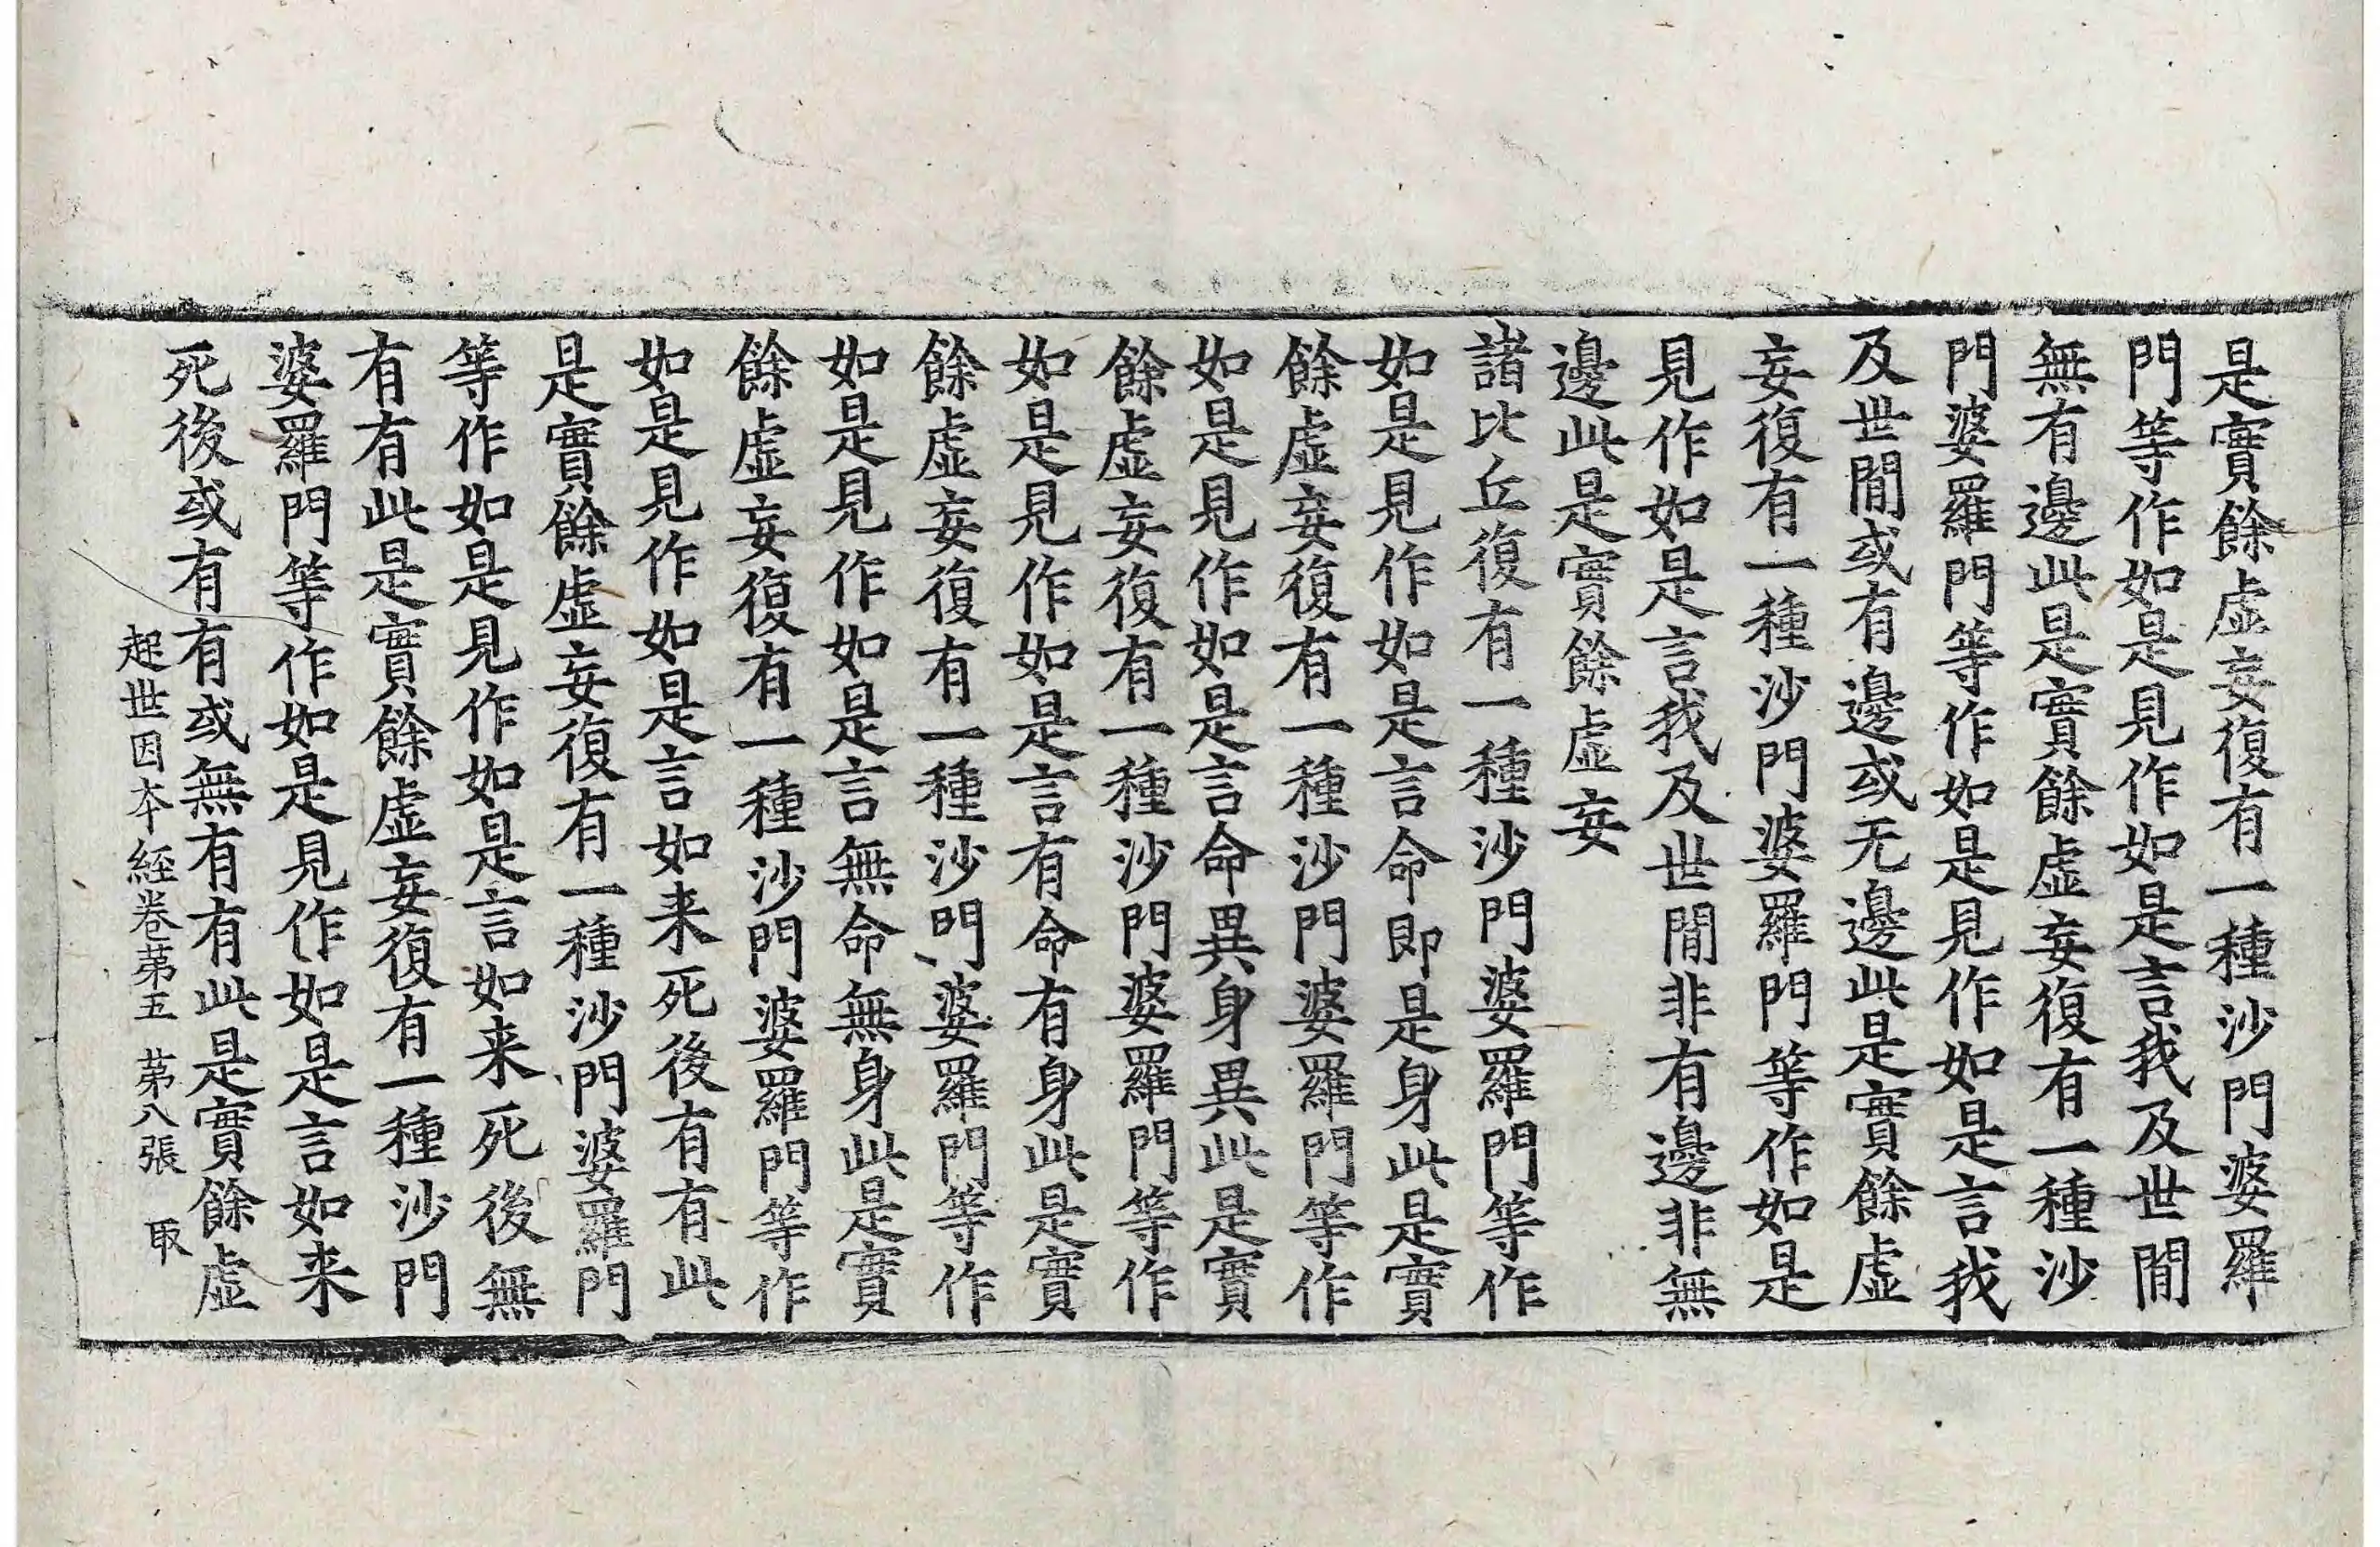 是實餘虛妄復有一種沙門婆羅
門等作如是見作如是言我及世間
無有邊此是實餘虛妄復有一種沙
門婆羅門等作如是見作如是言我
及世間或有邊或无邊此是實餘虛
妄復有一種沙門婆羅門等作如是
見作如是言我及世間非有邊非無
邊此是實餘虛妄
諸比丘復有一種沙門婆羅門等作
如是見作如是言命即是身此是實
餘虛妄復有一種沙門婆羅門等作
如是見作如是言命異身異此是實
餘虛妄復有一種沙門婆羅門等作
如是見作如是言有命有身此是實
餘虛妄復有一種沙門婆羅門等作
如是見作如是言無命無身此是實
餘虛妄復有一種沙門婆羅門等作
如是見作如是言如来死後有有此
是實餘虛妄復有一種沙門婆羅門
等作如是見作如是言如来死後無
有有此是實餘虛妄復有一種沙門
婆羅門等作如是見作如是言如来
死後或有有或無有有此是實餘虛
起世因本經卷苐五 苐八張 取